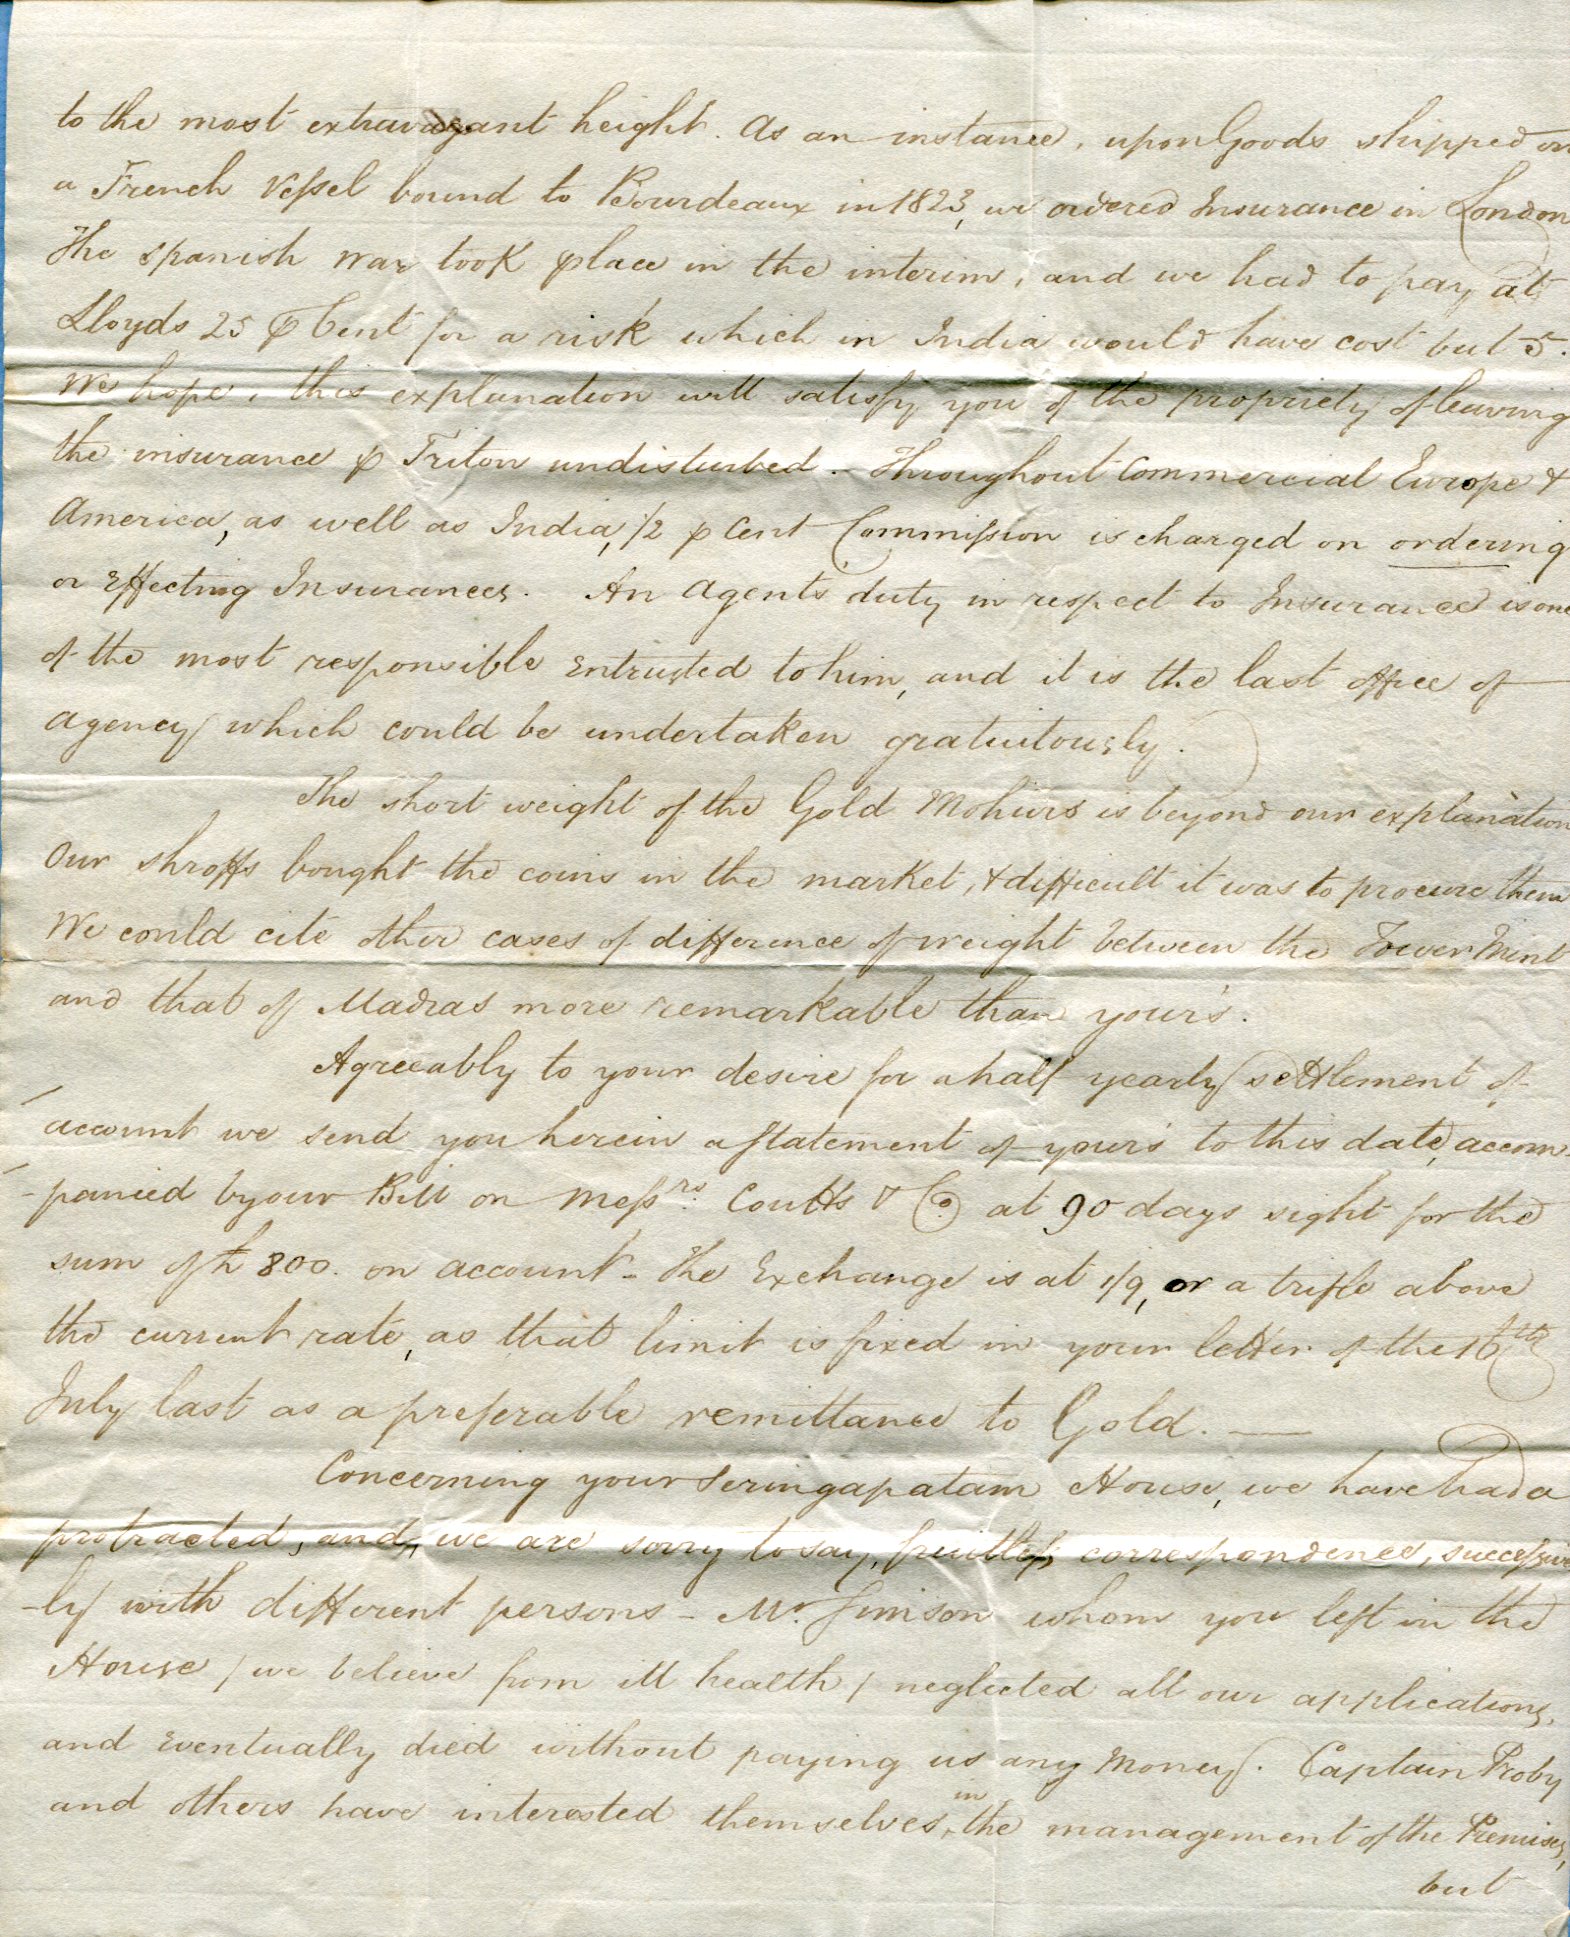 to the most extravagant height. As an instance, upon Goods shipped on
a French Vessel bound to Bourdeaux in 1823, we ordered Insurance in London
The Spanish War took place in the interim, and we had to pay at
Lloyds 25 ⅌ Cent for a risk which in India would have cost but 5.
We hope, this explanation will satisfy you of the propriety of leaving
the insurance ⅌ Triton undisturbed. - Throughout Commercial Europe &
America, as well as India, 1/2 ⅌ Cent Commission is charged on ordering
or Effecting Insurances. An Agents' duty in respect to Insurance is one
of the most responsible Entrusted to him, and it is the last office of
Agency which could be undertaken gratuitously.
The short weight of the Gold Mohurs is beyond our explanation
Our shroffs bought the coins in the market, & difficult it was to procure them
We could cite other cases of difference of weight between the Tower Mint
and that of Madras more remarkable than your's.
Agreeably to your desire for a half yearly settlement of
account we send you herein a Statement of your's to this date, accom-
-panied by our Bill on Messrs. Coutts & Co. at 90 days sight for the
sum of £ 800. on account - The Exchange is at 1/9, or a trifle above
the current rate, as that limit is fixed in your letter of the 16th
July last as a preferable remittance to Gold. —
Concerning your Seringapatam House, we have had a
protracted, and, we are sorry to say, fruitless, correspondence, successive
-ly with different persons - Mr. Jimson whom you left in the
House / we believe from ill health / neglected all our applications,
and Eventually died without paying us any Money. Captain Proby
and others have interested themselves in the management of the Premises,
but